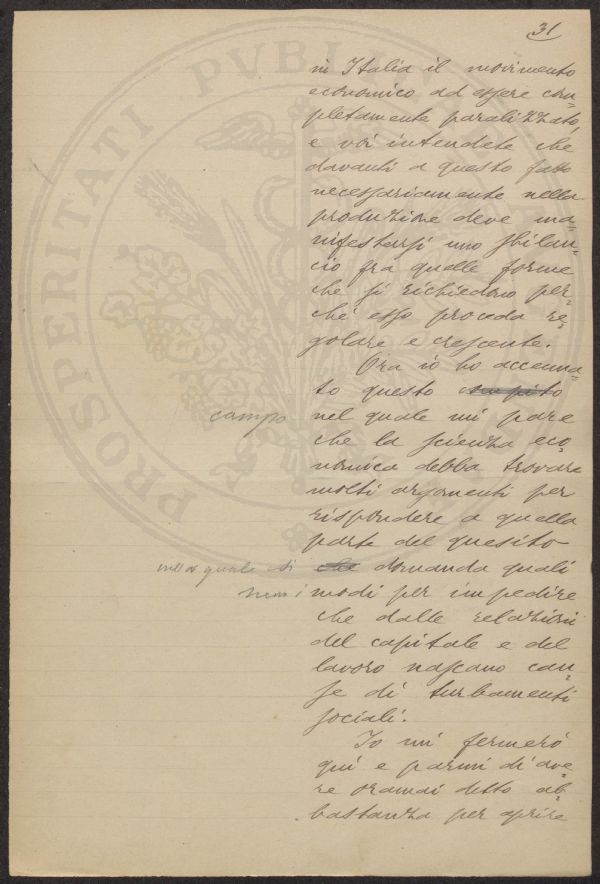 31
PROSPERITATI PVBLI
in Italia il movimento
economico ad essere com=
pletamente paralizzato,
e voi intendete che
davanti a questo fatto
necessariamente nella
produzione deve ma=
nifestarsi uno sbilan=
cio fra quelle forme
che si richiedono per=
chè esso proceda re=
golare e crescente.
Ora io ho accenna=
to questo compito
campo
nel quale mi pare
che la scienza eco=
nomica debba trovare
molti argomenti per
rispondere a quella
parte del quesito
nella quale si che domanda quali
sieno i modi per impedire
che dalle relazioni
del capitale e del
lavoro nascano cau=
se di turbamenti
sociali.
Io mi fermerò
qui e parmi di ave=
re oramai detto ab=
bastanza per aprire